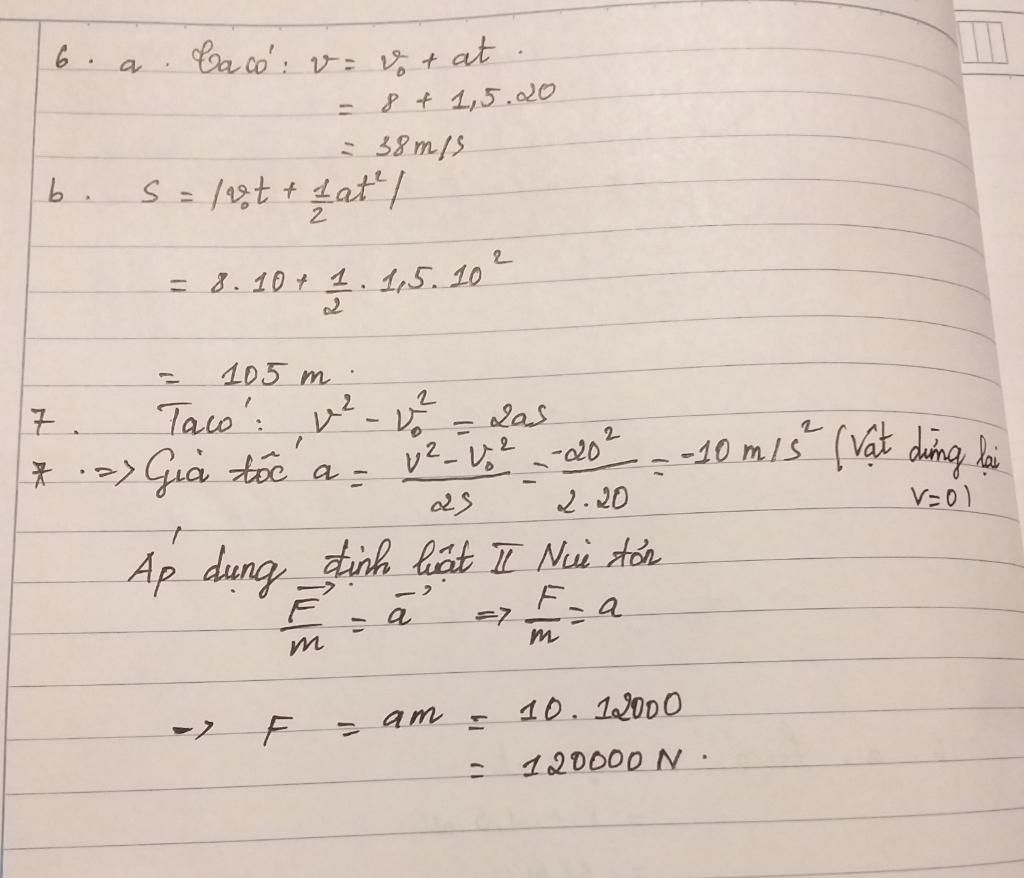 6. a. Ta có: v = v₀ + at.
= 8 + 1,5.20
= 38 m/s
b. S = |v₀t + 1/2 at²|
= 8.10 + 1/2 . 1,5.10²
= 105 m.
7. Ta có: v² - v₀² = 2as
=> Gia tốc a = (v² - v₀²)/2s = -20²/2.20 = -10 m/s² (Vật dừng lại v=0)
Áp dụng định luật II Niu tơn
F⃗/m = a⃗ => F/m = a
-> F = am = 10.12000
= 120000 N.